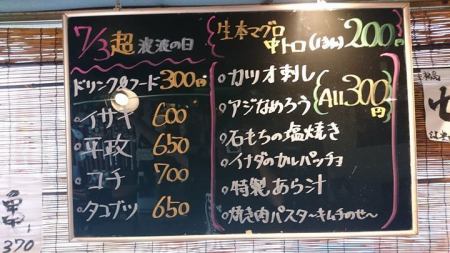 7/3 超 波波の日
ドリンク&フード 300円
・イサキ 600
・平政 650
・コチ 700
・タコブツ 650
生本マグロ
中トロ(1カン)200円
・カツオ刺し
・アジなめろう
All300円
・石もちの塩焼き
・イナダのカルパッチョ
・特製あら汁
・焼き肉パスタ~キムチのせ~
370